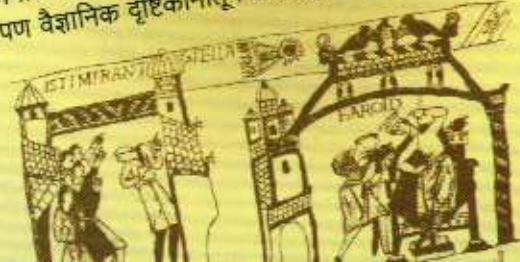 पण वैज्ञानिक दृष्टिकोनातून
ISTI MIRANT STELLA
HAROLD